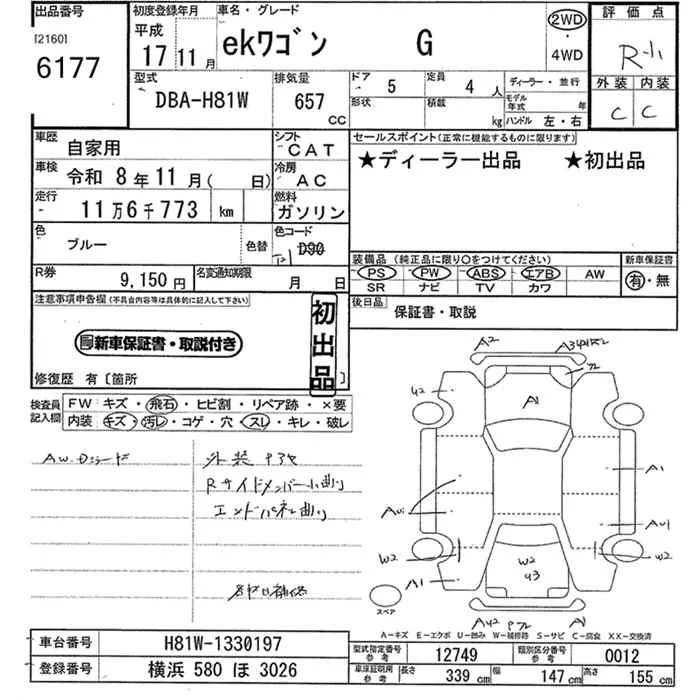 出品番号
[2160]
6177
初度登録年月
平成
17 11 月
車名・グレード
ekワゴン G
2WD
・
4WD
評価点
R-1
外装 内装
C C
型式
DBA-H81W
排気量
657
CC
ドア 5
定員 4 人
形状
積載 kg
ディーラー・並行
モデル年式 年
ハンドル 左・右
車歴 自家用
シフト CAT
車検 令和 8年 11月( 日)
冷房 AC
走行 11万6千773 km
燃料 ガソリン
色 ブルー
色替
色コード D90
R券 9,150円
名変通知期限 月 日
セールスポイント(正常に機能するものに限ります)
★ディーラー出品 ★初出品
装備品 (純正品に限り○をつけてください)
PS PW ABS エアB AW
SR ナビ TV カワ
新車保証書
有・無
後日品 保証書・取説
注意事項申告欄(不具合内容等は具体的に記入して下さい)
新車保証書・取説付き
初出品
修復歴 有〔箇所 〕
検査員記入欄
FW キズ・飛石・ヒビ割・リペア跡・×要
内装 キズ・汚レ・コゲ・穴・スレ・キレ・破レ
外装
Rサイドメンバー小曲り
エンドパネル曲り
A2
U2
A1
A1
W2
W2
W2
U3
A1
A1
スペア
A-キズ E-エクボ U-凹み W-補修跡 S-サビ C-腐食 XX-交換済
車台番号 H81W-1330197
登録番号 横浜 580 ほ 3026
型式指定番号 参考 12749
類別区分番号 参考 0012
車庫証明用 参考 長さ 339 cm 幅 147 cm 高さ 155 cm